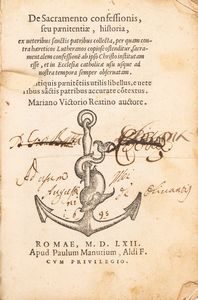 De Sacramento confessionis,
seu pœnitentiæ, historia,
ex ueteribus sanctis patribus collecta, per quam contra
hæreticos Lutheranos copiosè ostenditur, Sacramentalem
confessionẽ ab ipso Christo institutam
esse, et in Ecclesia catholica usu usque ad
nostra tempora semper obseruatam.
antiquis pœnitẽtiis utilis libellus, e uete
ribus sãctis patribus accurate cõtextus.
Mariano Victorio Reatino auctore.
Ad usum
Augustini
de
95
ROMAE, M. D. LXII.
Apud Paulum Manutium, Aldi F.
CVM PRIVILEGIO.